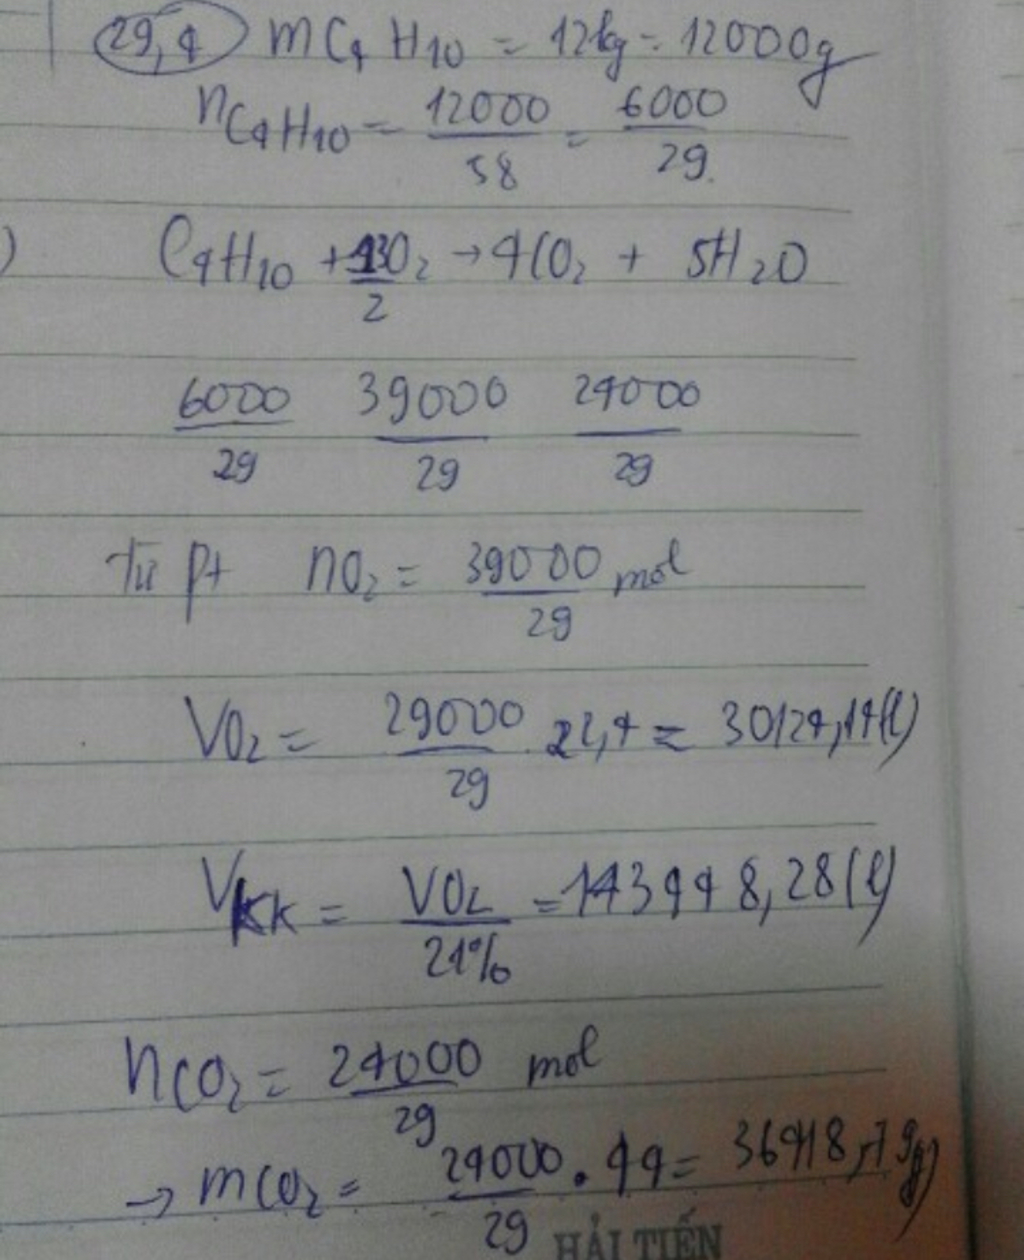 29,4 mC4H10 = 12kg = 12000g
nC4H10 = 12000/58 = 6000/29
) C4H10 + 13/2O2 → 4CO2 + 5H2O
6000/29 39000/29 24000/29
Từ pt nO2 = 39000/29 mol
VO2 = 29000/29 . 22,4 = 30124,14(l)
Vkk = VO2/21% = 143448,28(l)
nCO2 = 24000/29 mol
→ mCO2 = 24000/29 . 44 = 36418,7 g
HẢI TIẾN